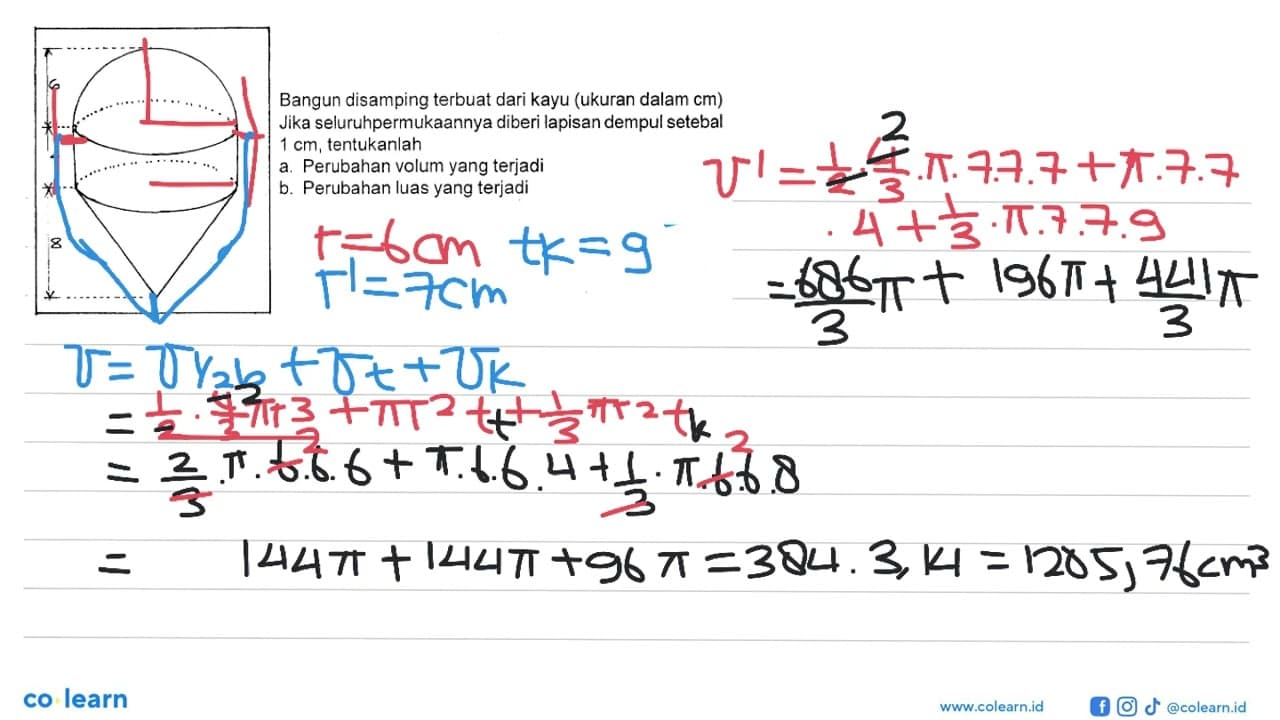 6
Bangun disamping terbuat dari kayu (ukuran dalam cm)
Jika seluruhpermukaannya diberi lapisan dempul setebal
1 cm, tentukanlah
a. Perubahan volum yang terjadi
b. Perubahan luas yang terjadi
8
r=6cm tk=9
r'=7cm
V' = 1/2 . 4/3 2 . π. 7.7.7 + π.7.7
. 4 + 1/3 . π.7.7.9
= 686/3 π + 196π + 441/3 π
V = V1/2b + Vt + Vk
= 1/2 . 4/3 2 πr3 + πr2 tt + 1/3 πr2 tk
= 2/3 . π. 6 2 .6.6 + π.6.6.4 + 1/3 . π.6 2 .6.8
= 144π + 144π + 96π = 384. 3,14 = 1205,76cm³
co learn
www.colearn.id
@colearn.id